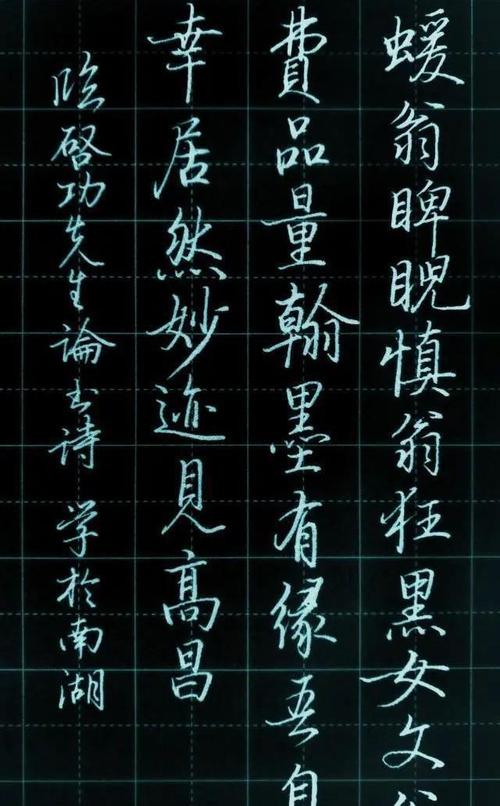 蝯翁睥睨慎翁狂黑女文
費品量翰墨有缘吾自
幸居然妙迹見高昌
临啓功先生論书诗 学於南湖